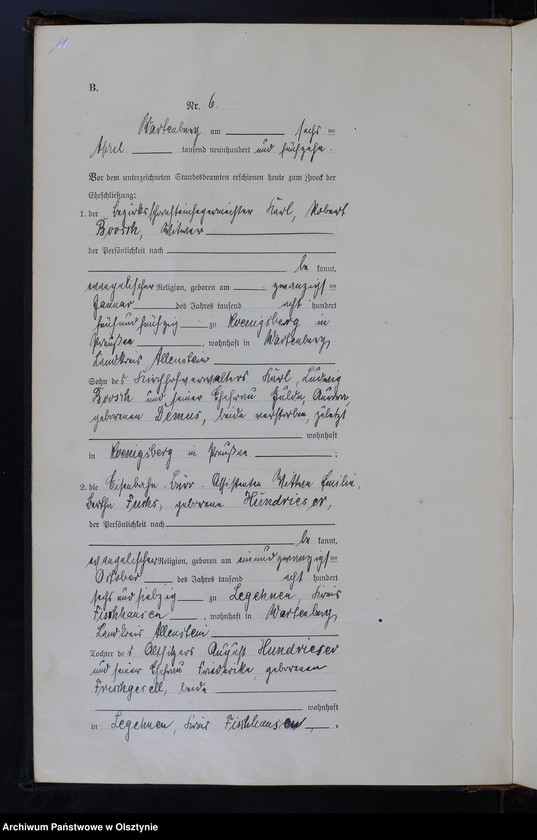 11
B.
Nr. 6.
Wartenburg am sechsten
April tausend neunhundert und fünfzehn.
Vor dem unterzeichneten Standesbeamten erschienen heute zum Zweck der
Eheschließung:
1. der Bezirksschornsteinfegermeister Karl, Robert
Boosch, Witwer
der Persönlichkeit nach
be kannt,
evangelischer Religion, geboren am zwanzigsten
Januar des Jahres tausend acht hundert
fünfundfünfzig zu Koenigsberg in
Preußen, wohnhaft in Wartenburg,
Landkreis Allenstein
Sohn des Kirchhofverwalters Karl, Ludwig
Boosch und seiner Ehefrau Hulda,
geborenen Demus, beide verstorben, zuletzt
wohnhaft
in Koenigsberg in Preußen;
2. die Eisenbahn-Büro-Assistenten Witwe Emilie,
Bertha Fuchs, geborene Hundrieser,
der Persönlichkeit nach
be kannt,
evangelischer Religion, geboren am einundzwanzigsten
Oktober des Jahres tausend acht hundert
sechsundsiebzig zu Legehnen, Kreis
Fischhausen, wohnhaft in Wartenburg,
Landkreis Allenstein
Tochter des Altsitzers August Hundrieser
und seiner Ehefrau Friederike, geborenen
Frischgesell, beide
wohnhaft
in Legehnen, Kreis Fischhausen.
Archiwum Państwowe w Olsztynie